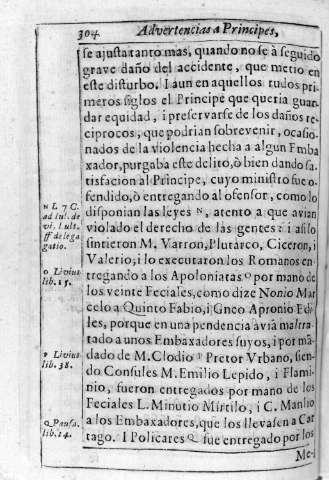 304 Advertencias a Principes,
se ajusta tanto mas, quando no se à seguido
grave daño del accidente, que metio en
este disturbo. I aun en aquellos rudos pri-
meros siglos el Principe que queria guar-
dar equidad, i preservarse de los daños re-
ciprocos, que podrian sobrevenir, ocasio-
nados de la violencia hecha a algun Emba
xador, purgaba este delito, ò bien dando sa-
tisfacion al Principe, cuyo ministro fue o-
fendido, ò entregando al ofensor, como lo
disponian las leyes N, atento a que avian
violado el derecho de las gentes: i assi lo
sintieron M. Varron, Plutarco, Ciceron, i
Valerio; i lo executaron los Romanos en-
tregando a los Apoloniatas O por mano de
los veinte Feciales, como dize Nonio Mar-
celo a Quinto Fabio, i Gneo Apronio Edi-
les, porque en una pendencia avia maltra-
tado a unos Embaxadores suyos, i por mã-
dado de M. Clodio P Pretor Vrbano, sien-
do Consules M. Emilio Lepido, i Flami-
nio, fueron entregados por mano de los
Feciales L. Minutio Mirtilo, i C. Manlio
a los Embaxadores, que los llevasen a Car
tago. I Policares Q fue entregado por los
Me-
N L. 7 C.
ad Iul. de
vi. l. ult.
ff de lega
gatio.
O Livius
lib. 15.
P Livius
lib. 38.
Q Pausa.
lib. 14.